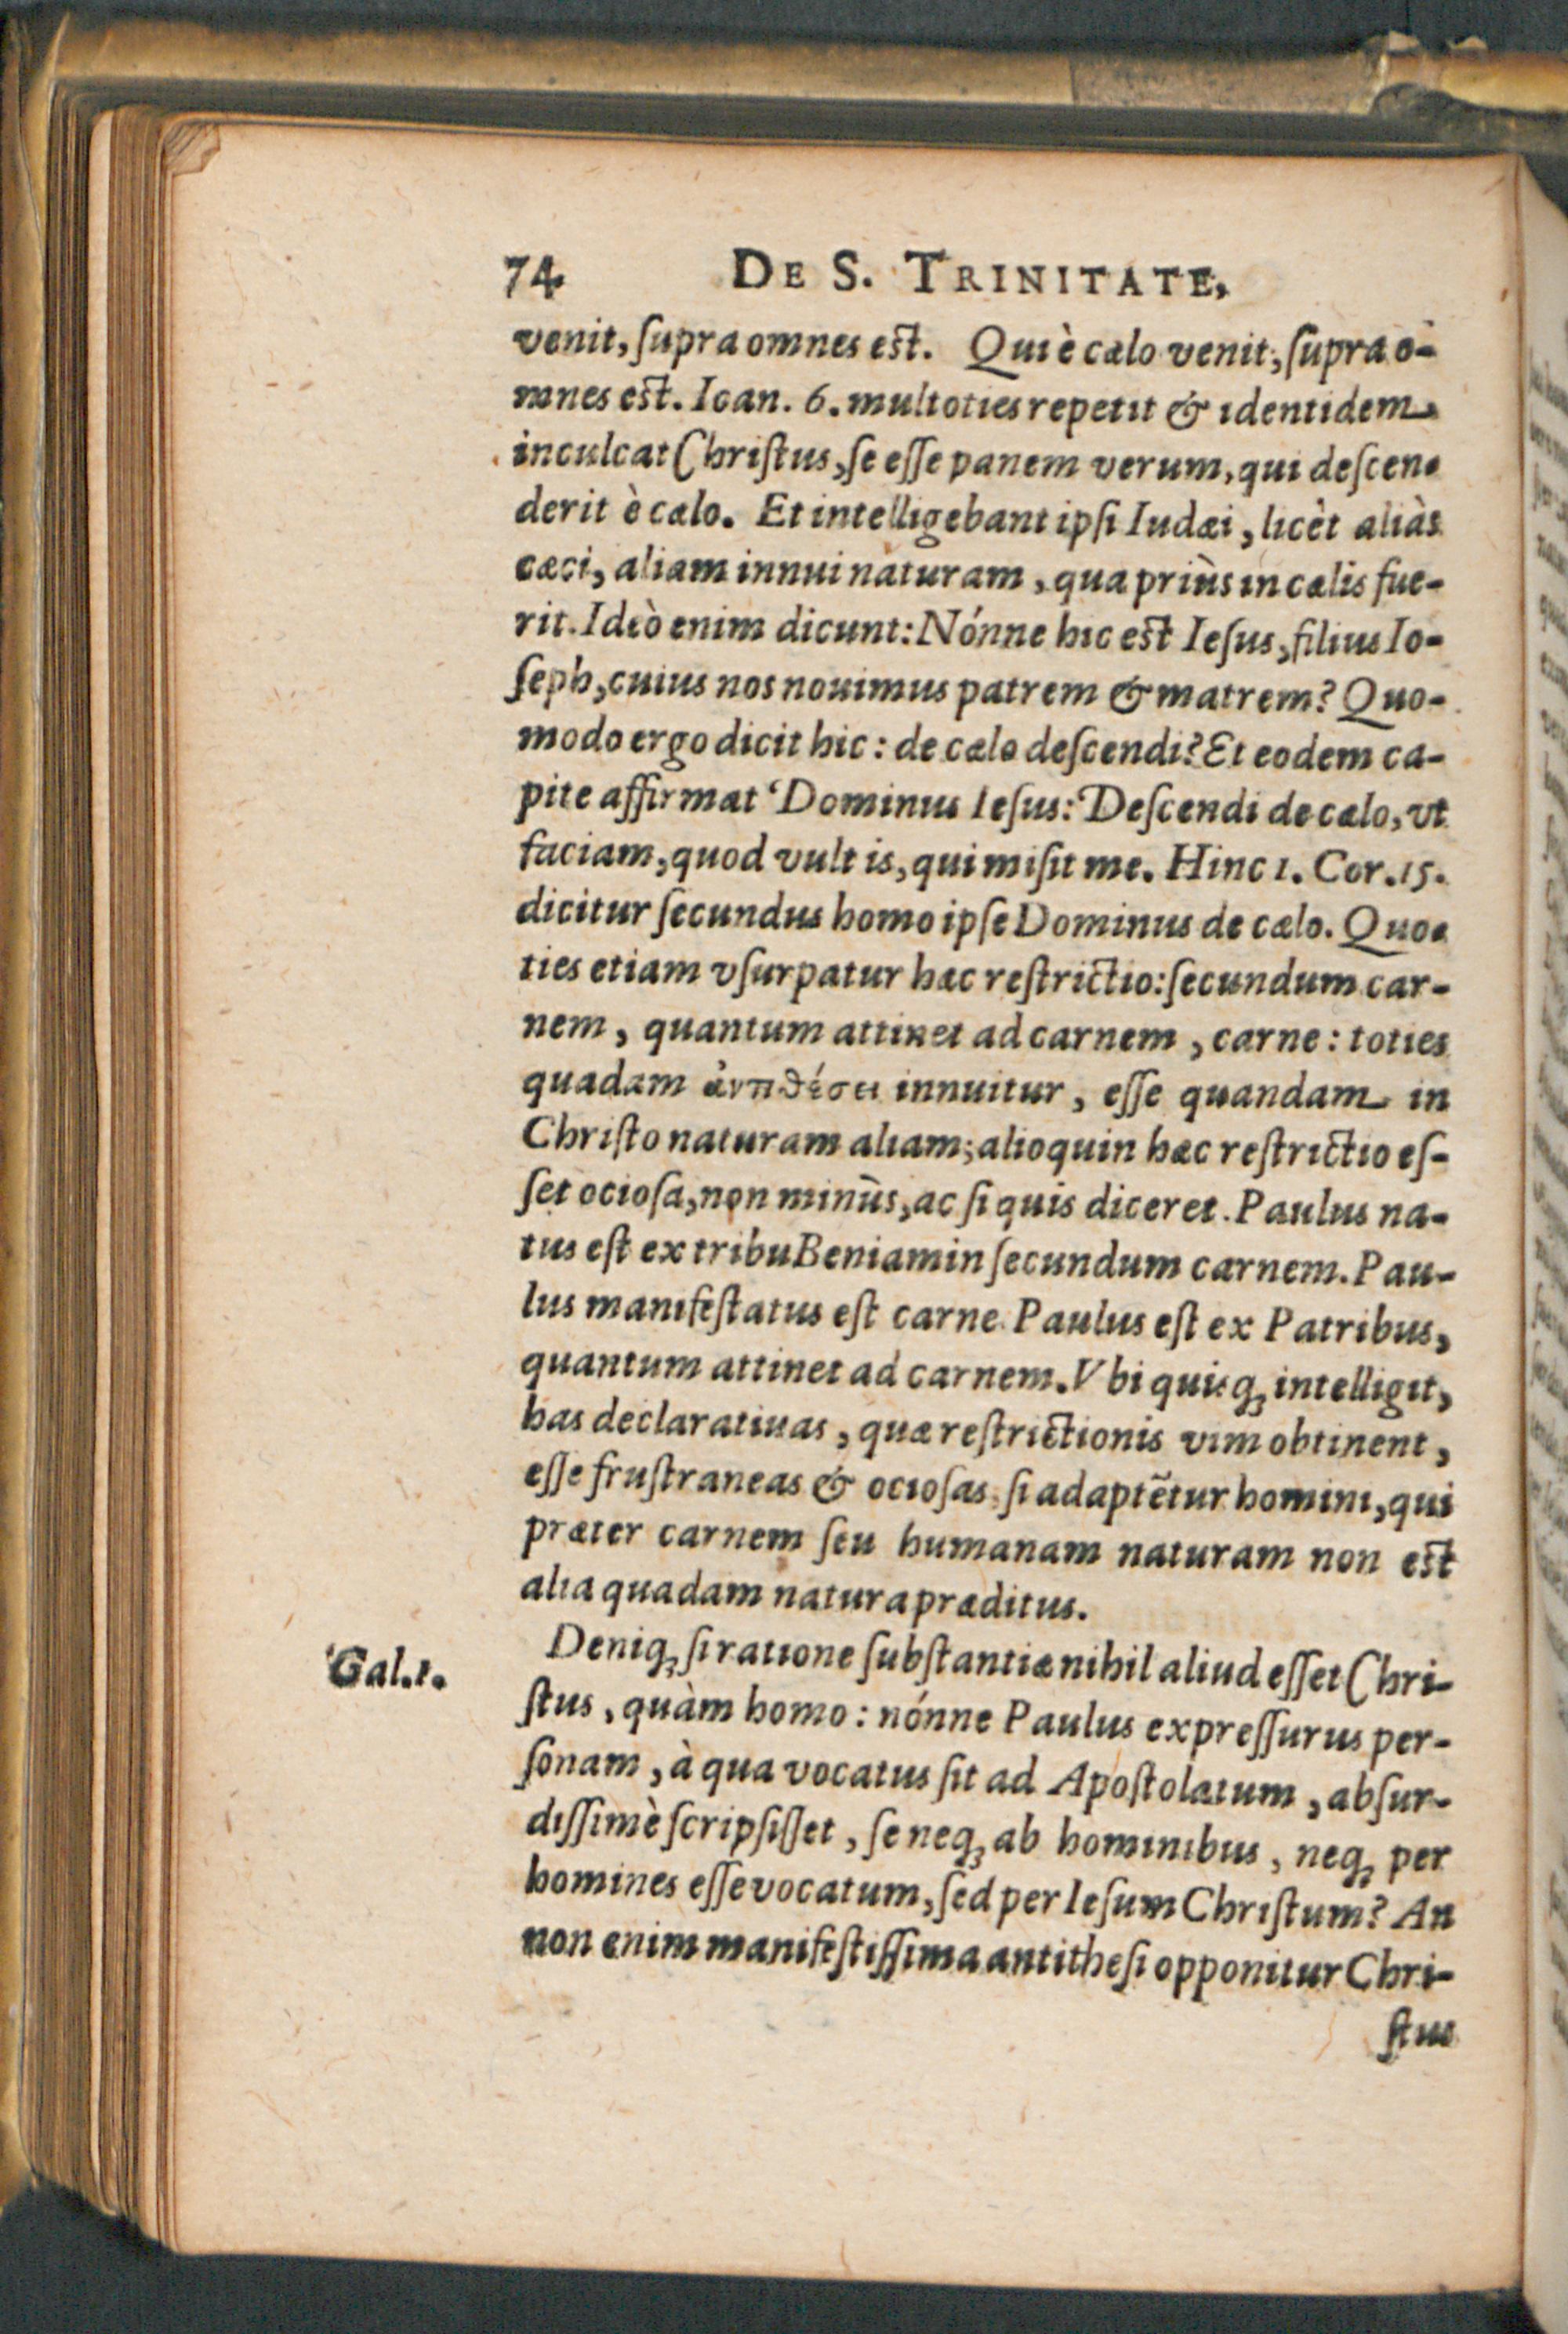 74 DE S. TRINITATE,
venit, ſupra omnes eſt. Qui è cælo venit, ſupra o-
mnes eſt. Ioan. 6. multoties repetit & identidem
inculcat Chriſtus, ſe eſſe panem verum, qui deſcen-
derit è cælo. Et intelligebant ipſi Iudæi, licèt aliàs
cæci, aliam innui naturam, qua priùs in cælis fue-
rit. Ideò enim dicunt: Nónne hic eſt Ieſus, filius Io-
ſeph, cuius nos nouimus patrem & matrem? Quo-
modo ergo dicit hic: de cælo deſcendi? Et eodem ca-
pite affirmat Dominus Ieſus: Deſcendi de cælo, vt
faciam, quod vult is, qui miſit me. Hinc 1. Cor. 15.
dicitur ſecundus homo ipſe Dominus de cælo. Quo-
ties etiam vſurpatur hæc reſtrictio: ſecundum car-
nem, quantum attinet ad carnem, carne: toties
quadam ἀντιθέσει innuitur, eſſe quandam in
Chriſto naturam aliam; alioquin hæc reſtrictio eſ-
ſet ocioſa, non minùs, ac ſi quis diceret. Paulus na-
tus eſt ex tribu Beniamin ſecundum carnem. Pau-
lus manifeſtatus eſt carne. Paulus eſt ex Patribus,
quantum attinet ad carnem. Vbi quiſq; intelligit,
has declaratiuas, quæ reſtrictionis vim obtinent,
eſſe fruſtraneas & ocioſas, ſi adaptẽtur homini, qui
præter carnem ſeu humanam naturam non eſt
alia quadam natura præditus.
Deniq; ſi ratione ſubſtantiæ nihil aliud eſſet Chri-
Gal. 1.
ſtus, quàm homo: nónne Paulus expreſſurus per-
ſonam, à qua vocatus ſit ad Apoſtolatum, abſur-
diſſimè ſcripſiſſet, ſe neq; ab hominibus, neq; per
homines eſſe vocatum, ſed per Ieſum Chriſtum? An
non enim manifeſtiſſima antitheſi opponitur Chri-
ſtus